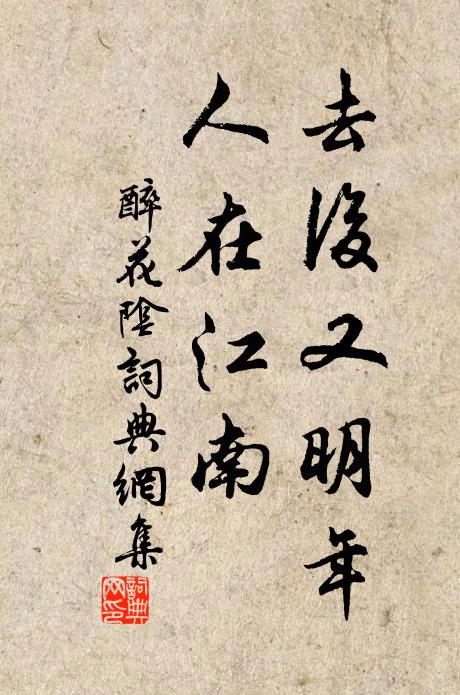 去後又明年
人在江南
醉花陰詞典網集
詞典
网印